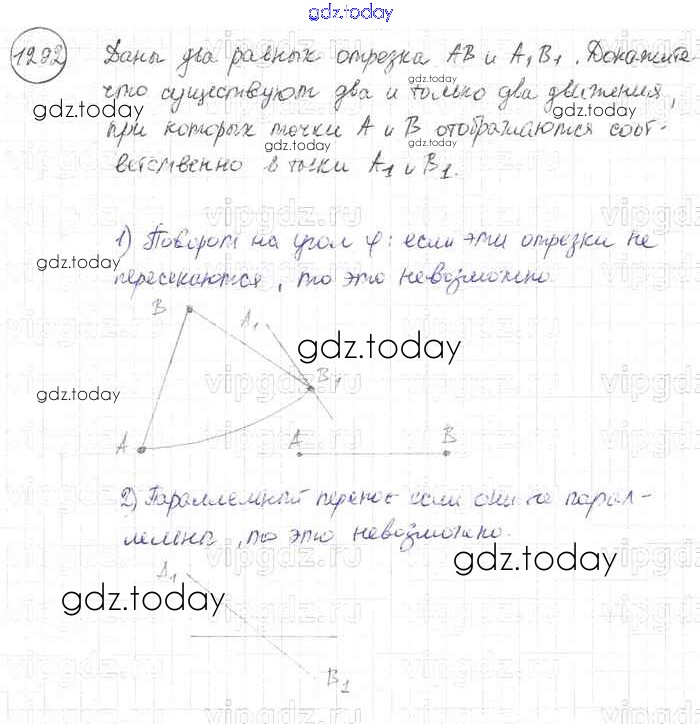 gdz.today
1292 Даны два равных отрезка AB и A₁B₁. Докажите
что существуют два и только два движения,
gdz.today gdz.today
при которых точки A и B отображаются соот-
ветственно в точки A₁ и B₁.
gdz.today
vipgdz.ru vipgdz.ru
1) Поворот на угол φ: если эти отрезки не
gdz.today
пересекаются, то это невозможно.
B
A₁
gdz.today
B₁
gdz.today vipgdz.ru
A A B
2) Параллельный перенос если они не парал-
лельны, то это невозможно.
gdz.today
A₁
gdz.today
vipgdz.ru
B₁